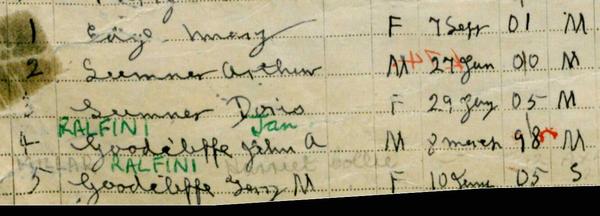 1 Mary F 7 Sep 01 M
2 Sumner Arthur M 27 Jan 00 M
3 Sumner Doris F 29 05 M
RALFINI Jan
4 Goodcliffe John A M 8 March 98 M
RALFINI
5 Goodcliffe M F 10 June 05 S